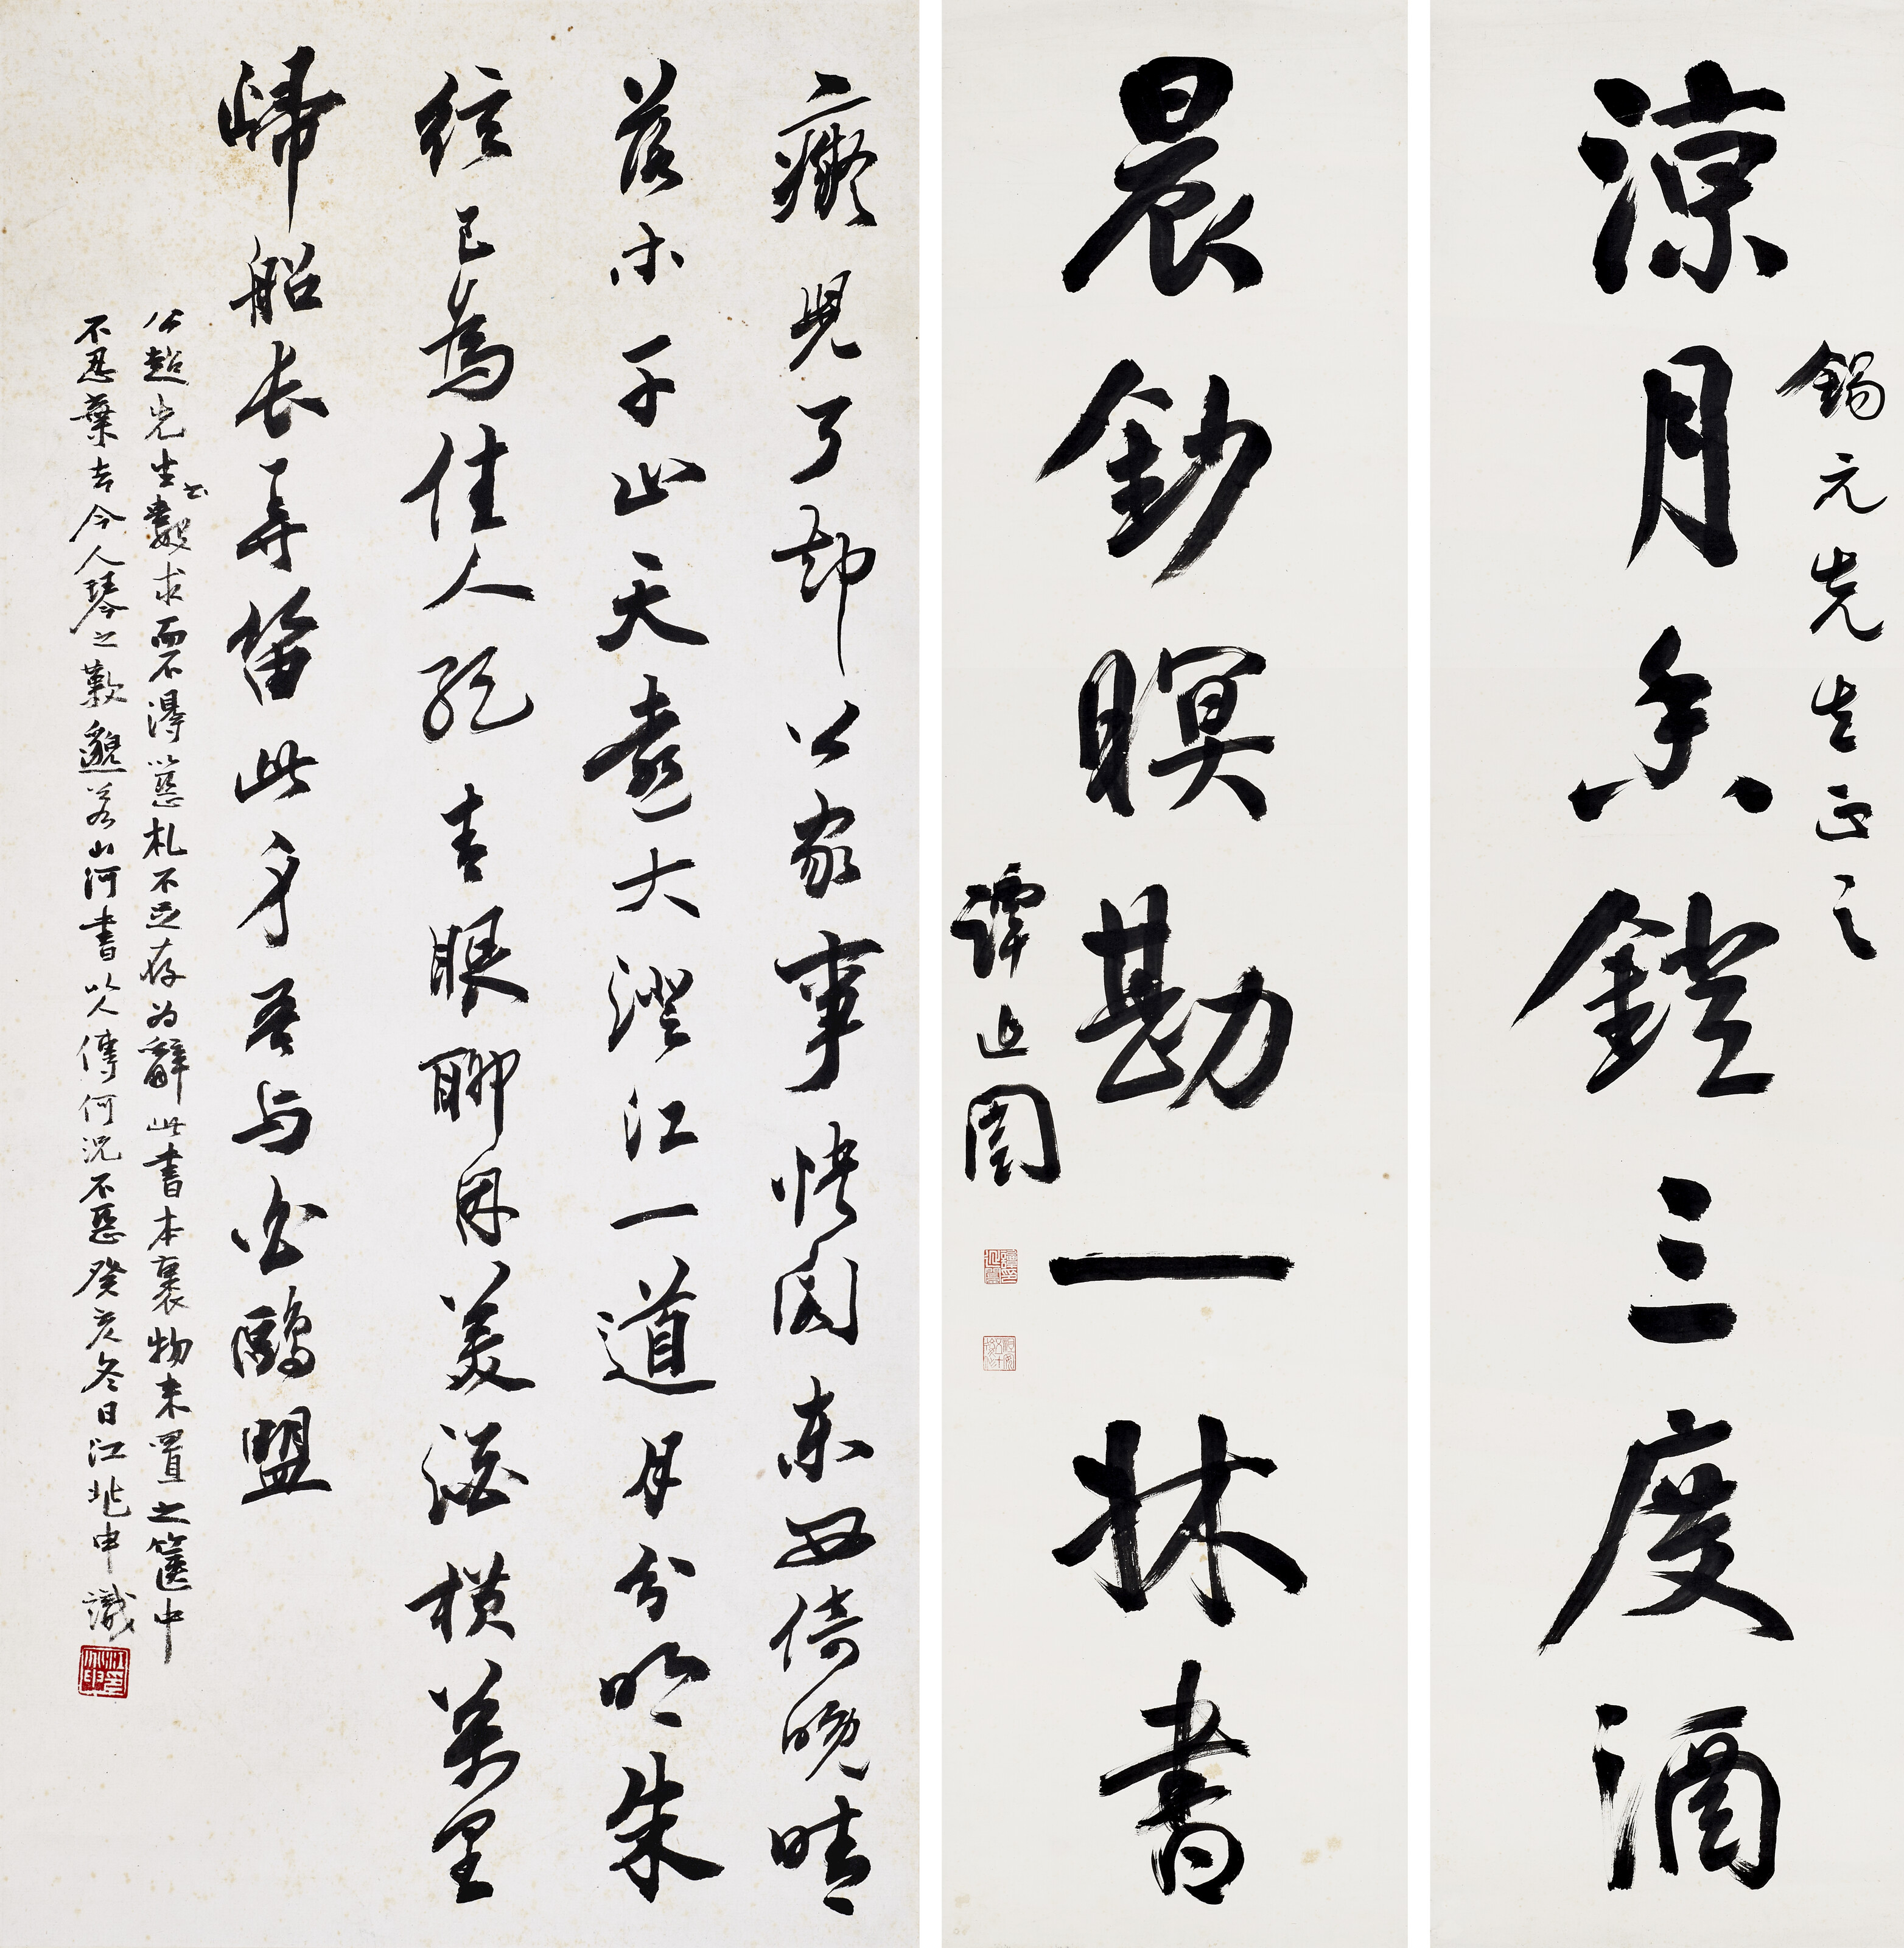 涼月香鐙三度酒
錫元先生正之
晨鈔瞑勘一牀書
譚延闓
癡兒了却公家事快閣東西倚晚晴
落木千山天遠大澄江一道月分明朱
絃已為佳人絕青眼聊因美酒橫萬里
歸船長弄笛此心吾与白鷗盟
公超先生書數求而不得以惡札不足存為辭此書本裹物未置之篋中
不忍棄去今人琴之歎邈若山河書以人傳何況不惡癸亥冬日江兆申識